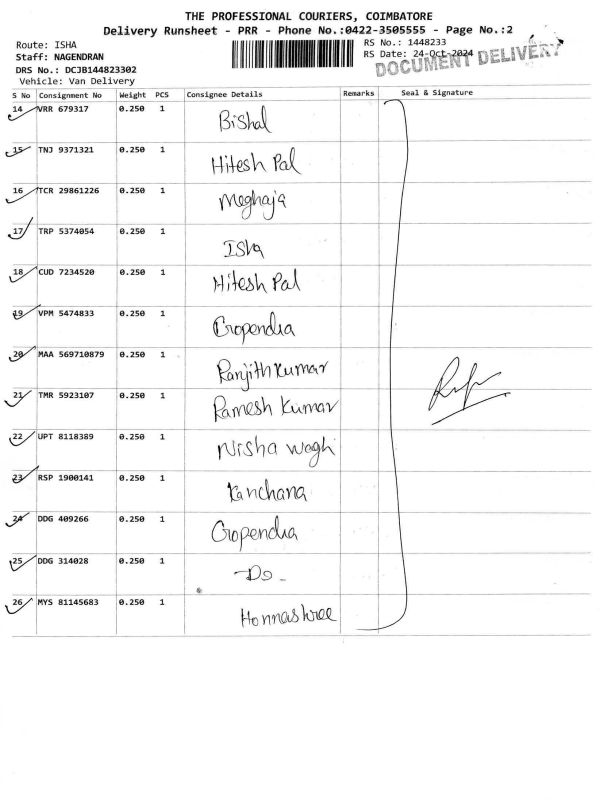 THE PROFESSIONAL COURIERS, COIMBATORE
Delivery Runsheet - PRR - Phone No.:0422-3505555 - Page No.:2
Route: ISHA
Staff: NAGENDRAN
DRS No.: DCJB144823302
Vehicle: Van Delivery
RS No.: 1448233
RS Date: 24-Oct-2024
DOCUMENT DELIVERY
S No Consignment No Weight PCS Consignee Details Remarks Seal & Signature
14 VRR 679317 0.250 1 Bishal
15 TNJ 9371321 0.250 1 Hitesh Pal
16 TCR 29861226 0.250 1 Meghaja
17 TRP 5374054 0.250 1 Isha
18 CUD 7234520 0.250 1 Hitesh Pal
19 VPM 5474833 0.250 1
20 MAA 569710879 0.250 1 Ranjith Kumar
21 TMR 5923107 0.250 1 Ramesh Kumar
22 UPT 8118389 0.250 1 Nisha Wagh
23 RSP 1900141 0.250 1 Kanchana
24 DDG 409266 0.250 1
25 DDG 314028 0.250 1 -Do-
26 MYS 81145683 0.250 1 Honnashree